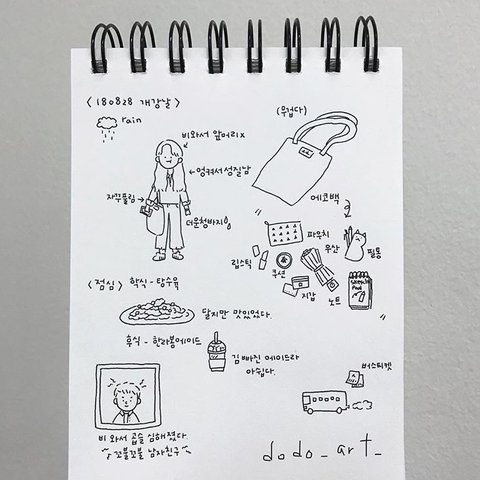 〈180828 개강날〉
rain
비와서 앞머리x
엉켜서 성질남
자꾸풀림
더운청바지
(무겁다)
에코백
파우치
우산
필통
립스틱
쿠션
지갑
노트
〈점심〉 학식-탕수육
달지만 맛있었다.
후식-한라봉에이드
김빠진 에이드라
아쉽다.
비와서 곱슬 심해졌다.
꼬불꼬불 남자친구
버스티켓
dodo_art_